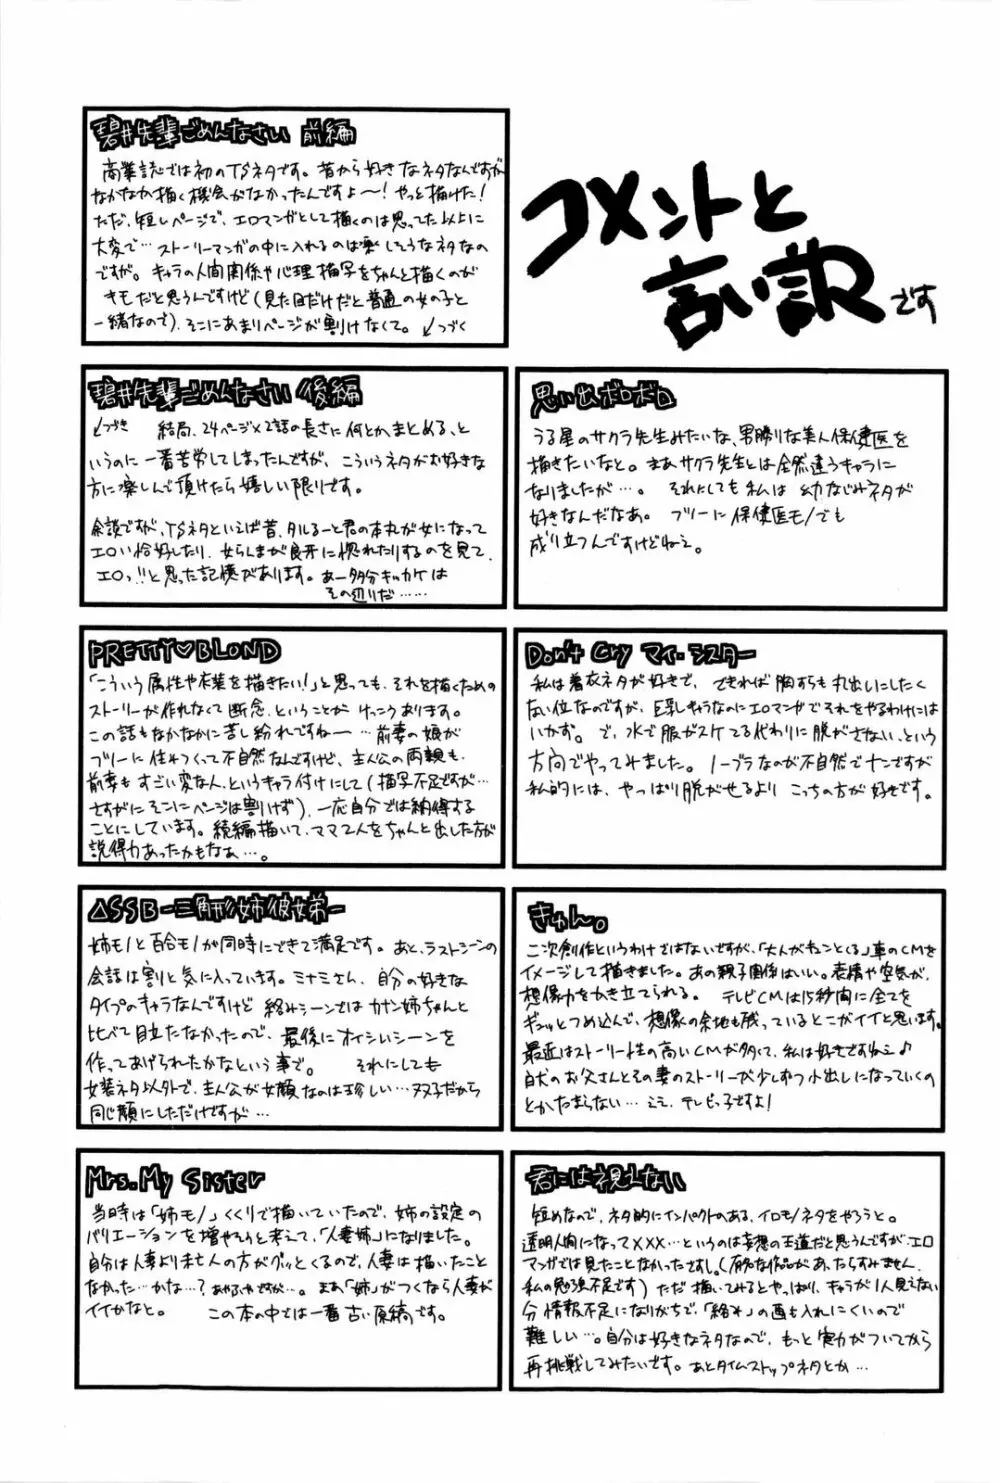 コメントと
言い訳です
碧井先輩ごめんなさい 前編
商業誌では初のTSネタです。昔から好きなネタなんですが
なかなか描く機会がなかったんですよ〜!やっと描けた!
ただ、短いページで、エロマンガとして描くのは思ってた以上に
大変で…ストーリーマンガの中に入れるのは楽しそうなネタなの
ですが。キャラの人間関係や心理描写をちゃんと描くのが
キモだと思うんですけど(見た目だけだと普通の女の子と
一緒なので)、そこにあまりページが割けなくて。↙つづく
碧井先輩ごめんなさい 後編
↙つづき 結局、24ページ×2話の長さに何とかまとめる、と
いうのに一番苦労してしまったんですが、こういうネタがお好きな
方に楽しんで頂けたら嬉しい限りです。
余談ですが、TSネタといえば昔、タルるート君の本丸が女になって
エロい恰好したり、女らんまが良牙に惚れたりするのを見て、
エロっ!!と思った記憶があります。あー多分キッカケは
その辺りだ……
思い出ボロボロ
うる星のサクラ先生みたいな、男勝りな美人保健医を
描きたいなと。まあサクラ先生とは全然違うキャラに
なりましたが…。それにしても私は幼なじみネタが
好きなんだなあ。フツーに保健医モノでも
成り立つんですけどねえ。
PRETTY♥BLOND
「こういう属性や衣装を描きたい!」と思っても、それを描くための
ストーリーが作れなくて断念、ということがけっこうあります。
この話もなかなかに苦し紛れですねー…前妻の娘が
フツーに住みつくって不自然なんですけど、主人公の両親も、
前妻もすごい変な人、というキャラ付けにして(描写不足ですが…
さすがにそこにページは割けず)、一応自分では納得する
ことにしています。続編描いて、ママ2人をちゃんと出した方が
説得力あったかもなぁ…。
Don't Cry マイ・シスター
私は着衣ネタが好きで、できれば胸すらも丸出しにしたく
ない位なのですが、巨乳キャラなのにエロマンガでそれをやるわけには
いかず。で、水で服がスケてる代わりに脱がさない、という
方向でやってみました。ノーブラなのが不自然でナンですが
私的には、やっぱり脱がせるよりこっちの方が好きです。
△SSB-三角形姉彼女弟-
姉モノと百合モノが同時にできて満足です。あと、ラストシーンの
会話は割と気に入っています。ミナミさん、自分の好きな
タイプのキャラなんですけど絡みシーンではカナン姉ちゃんと
比べて目立たなかったので、最後にオイシいシーンを
作ってあげられたかなという事で。それにしても
女装ネタ以外で、主人公が女顔なのは珍しい…双子だから
同じ顔にしただけですが…
きゅん。
二次創作というわけではないですが、「大人がキュンとくる」車のCMを
イメージして描きました。あの親子関係はいい。表情や空気が、
想像力をかき立てられる。テレビCMは15秒間に全てを
ギュッとつめ込んで、想像の余地も残っているとこがイイと思います。
最近はストーリー性の高いCMが多くて、私は好きですねえ♪
白犬のお父さんとその妻のストーリーが少しずつ小出しになっていくの
とかたまらない…ええ、テレビっ子ですよ!
Mrs. My Sister
当時は「姉モノ」くくりで描いていたので、姉の設定の
バリエーションを増やそうと考えて、「人妻姉」になりました。
自分は人妻より未亡人の方がグッとくるので、人妻は描いたこと
なかった…かな…?あやふやですが…。まあ「姉」がつくなら人妻が
イイかなと。この本の中では一番古い原稿です。
君には視えない
短めなので、ネタ的にインパクトのある、イロモノネタをやろうと。
透明人間になって×××…というのは妄想の王道だと思うんですが、エロ
マンガでは見たことなかったですし。(有名な作品があったらすみません、
私の勉強不足です)ただ描いてみるとやっぱり、キャラが1人見えない
分情報不足になりがちで、「絡み」の画も入れにくいので
難しい…。自分は好きなネタなので、もっと実力がついてから
再挑戦してみたいです。あとタイムストップネタとか…